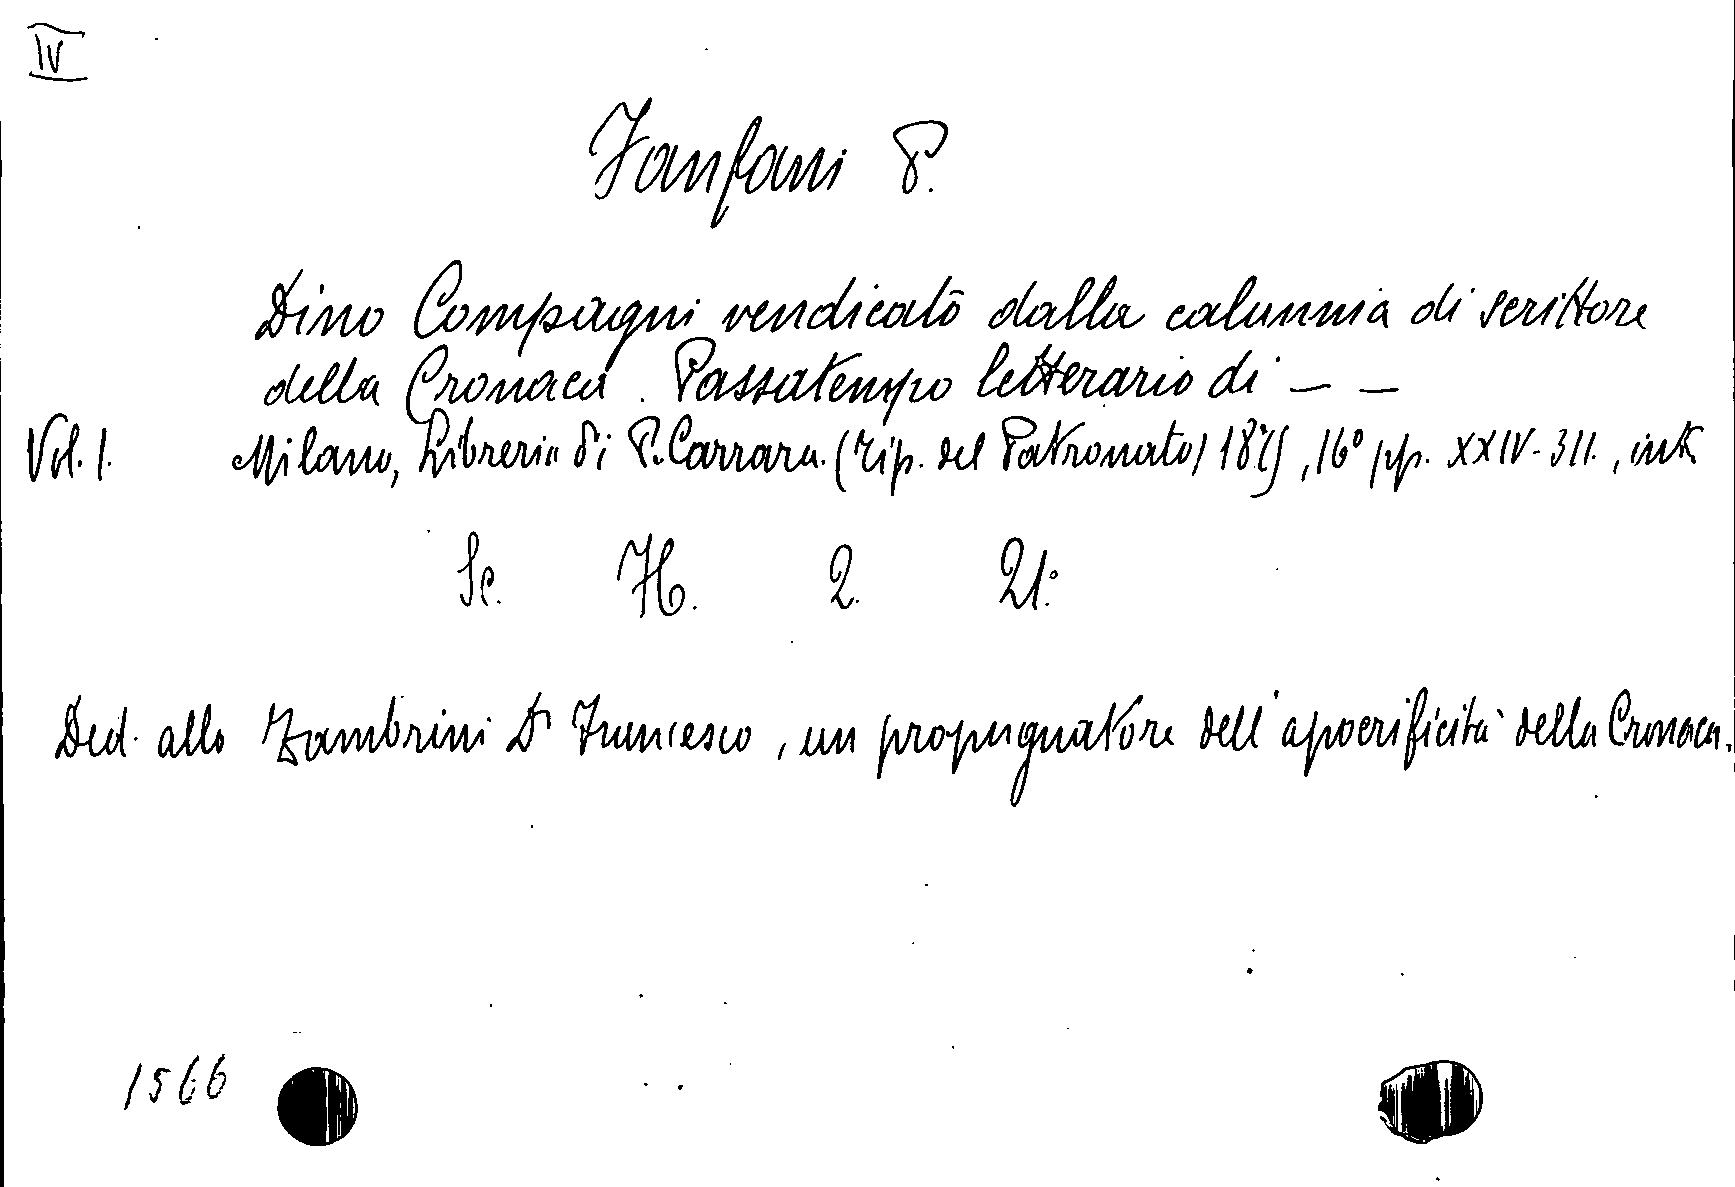 IV
Fanfani P.
Dino Compagni vendicato dalla calunnia di scrittore
della Cronaca. Passatempo letterario di — —
Vol. 1. Milano, Libreria di P. Carrara. (Tip. del Patronato) 1875, 16° pp. XXIV-311., int.
Sc. H. 2. 21.
Ded. allo Zambrini Dr Francesco, un propugnatore dell'apocrificità della Cronaca.
1566